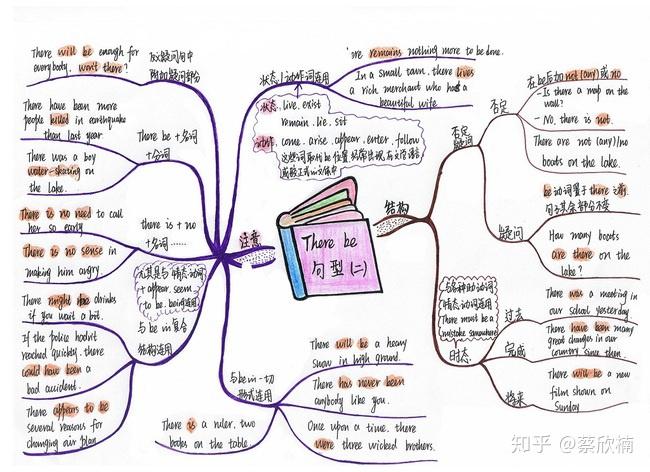 There be
句型(二)
注意
There will be enough for
everybody, won't there?
反疑问句中
附加疑问部分
There have been more
people killed in earthquake
than last year
There was a boy
water-skating on
the lake.
There be + 名词
+ 分词
There is no need to call
her so early
There is no sense in
making him angry.
there is + no
+ 名词......
There might be drinks
if you wait a bit.
If the police hadn't
reached quickly, there
could have been a
bad accident.
There appears to be
several reasons for
changing our plan
尤其是与情态动词
+ appear, seem
to be, being连用
与be的复合
结构连用
状态/动作词连用
're remains nothing more to be done.
In a small town, there lives
a rich merchant who has a
beautiful wife
状态. live. exist
remain. lie. sit
动作. come. arise. appear. enter. follow
这些词取代be位置
与be的一切
形式连用
There will be a heavy
snow in high ground.
There has never been
anybody like you.
Once upon a time, there
were three wicked brothers.
There is a ruler, two
books on the table.
结构
否定
疑问
否定
在be后加not (any)或no
-Is there a map on the
wall?
- No, there is not.
There are not (any)/no
boats on the lake.
疑问
be动词置于there前,
句子其余部分不变
How many boats
are there on the
lake?
与各种助动词
情态动词连用
There must be a
mistake somewhere
时态
过去
There was a meeting in
our school yesterday.
完成
There have been many
great changes in our
country since then.
将来
There will be a new
film shown on
Sunday
知乎 @蔡欣楠